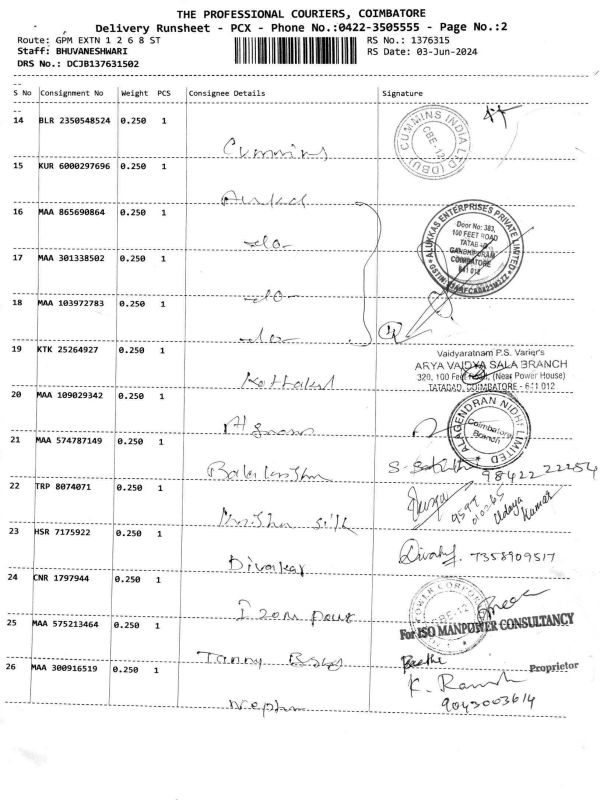 THE PROFESSIONAL COURIERS, COIMBATORE
Delivery Runsheet - PCX - Phone No.:0422-3505555 - Page No.:2
Route: GPM EXTN 1 2 6 8 ST
RS No.: 1376315
Staff: BHUVANESHWARI
RS Date: 03-Jun-2024
DRS No.: DCJB137631502
S No Consignment No Weight PCS Consignee Details Signature
14 BLR 2350548524 0.250 1
CUMMINS INDIA LTD (DBU)
CBE-12
Cummins
15 KUR 6000297696 0.250 1
16 MAA 865690864 0.250 1
-do-
ALUKKAS ENTERPRISES PRIVATE LIMITED
Door No: 383,
100 FEET ROAD
TATABAD
GANDHIPURAM
COIMBATORE
641 012
17 MAA 301338502 0.250 1
-do-
18 MAA 103972783 0.250 1
-do-
19 KTK 25264927 0.250 1
Vaidyaratnam P.S. Varier's
ARYA VAIDYA SALA BRANCH
320, 100 Feet Road, (Near Power House)
TATABAD, COIMBATORE - 641 012
Kottakal
20 MAA 109029342 0.250 1
ALAGENDRAN NIDHI LIMITED
Coimbatore
Branch
21 MAA 574787149 0.250 1
98422 22254
22 TRP 8074071 0.250 1
silk
Udaya
Kumar
23 HSR 7175922 0.250 1
Divakar
7358909517
24 CNR 1797944 0.250 1
CBE-12
25 MAA 575213464 0.250 1
For ISO MANPOWER CONSULTANCY
Proprietor
26 MAA 300916519 0.250 1
K. Ramesh
9043003614